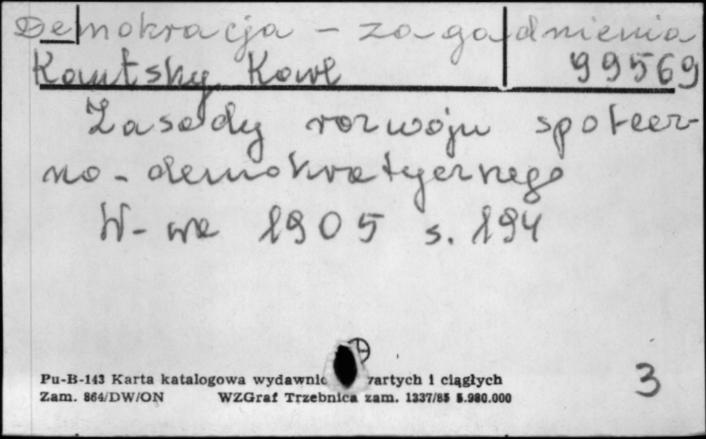 Demokracja - zagadnienia
Kautsky Karl 99569
Zasady rozwoju społecz-
no-demokratycznego
W-wa 1905 s. 194
3
Pu-B-143 Karta katalogowa wydawnic artych i ciągłych
Zam. 864/DW/ON WZGraf Trzebnica zam. 1337/85 5.980.000